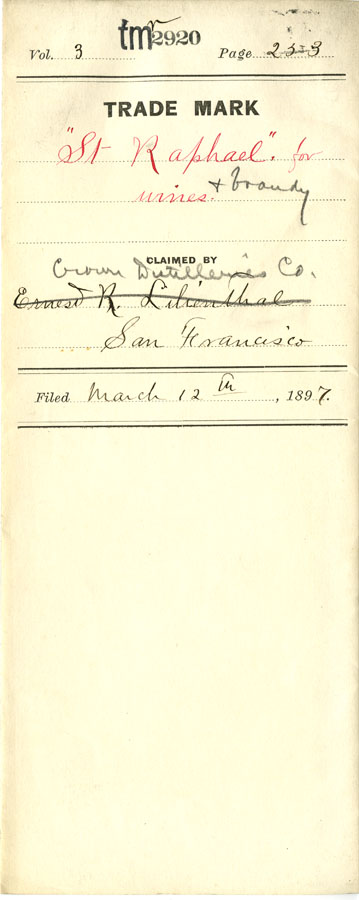 tm 2920
Vol. 3 Page 253
TRADE MARK
"St Raphael". for
wines. + brandy
CLAIMED BY
Crown Distilleries Co.
Ernest R. Lilienthal
San Francisco
Filed March 12th, 1897.